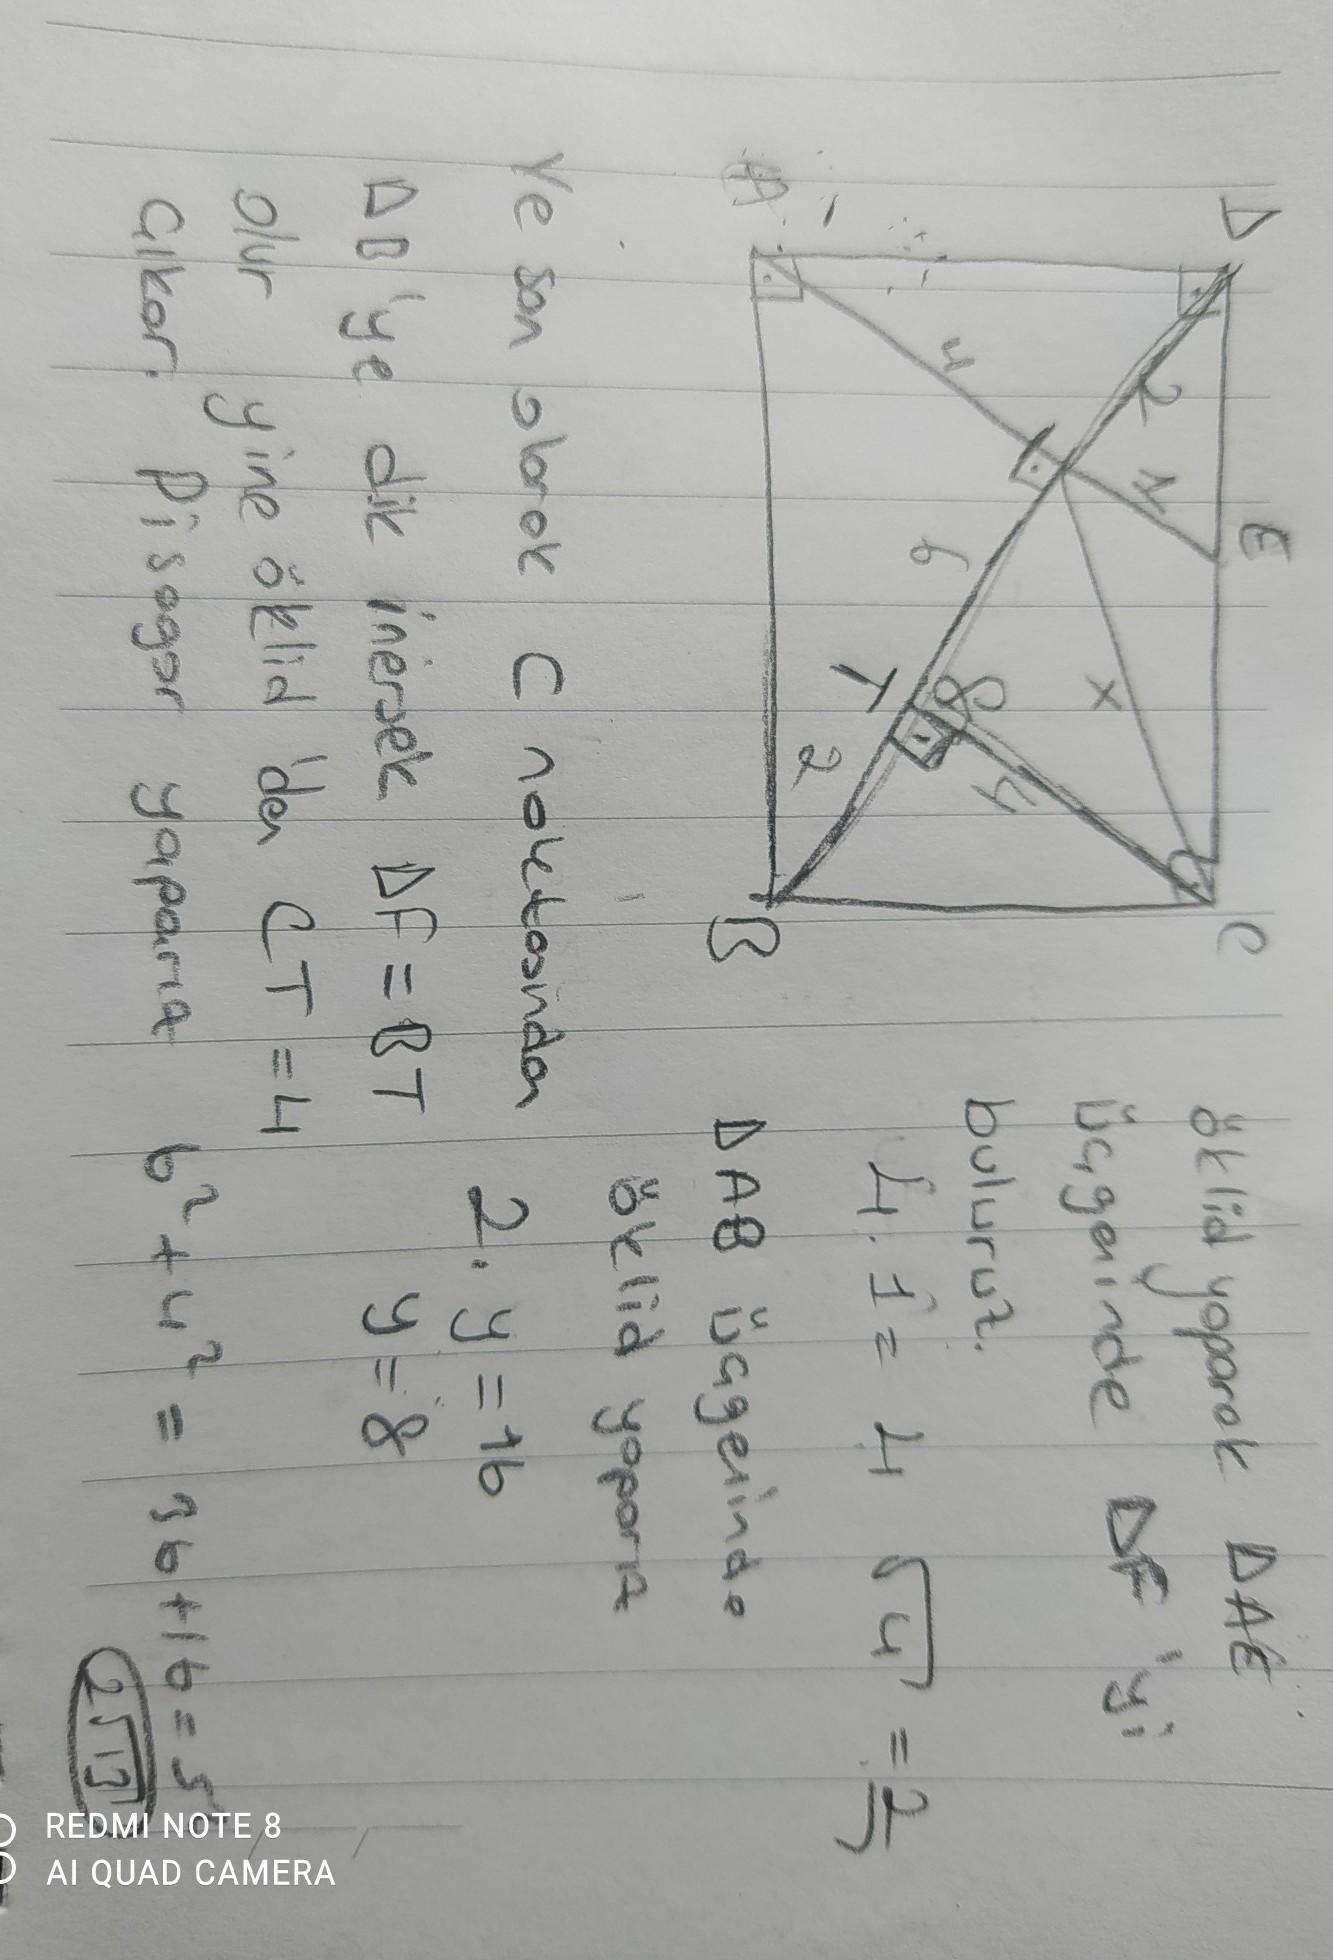 D
E
C
2
1
4
x
6
8
4
T
2
A
B
öklid yaparak DAE
üçgeninde DF'yi
buluruz.
4.1 = 4 √4 = 2
DAB üçgeninde
öklid yaparız
2.y = 16
y = 8
Ye son olarak C noktasından
DB'ye dik inersek DF = BT
olur yine öklid'den CT = 4
çıkar. Pisagor yaparız 6² + 4² = 36 + 16 = 5
2√13
REDMI NOTE 8
AI QUAD CAMERA